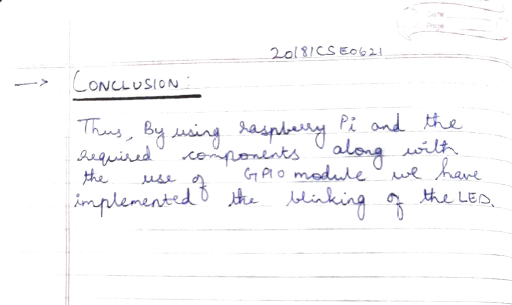 Date
Page
20181CSE0621
→ CONCLUSION:
Thus, By using raspberry Pi and the
required components along with
the use of GPIO module we have
implemented the blinking of the LED.